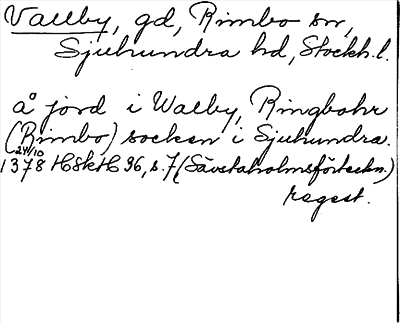 Vallby, gd, Rimbo sn,
Sjuhundra hd, Stockh. l.
å jord i Walby, Ringbohr
(Rimbo) socken i Sjuhundra.
24/10
1378 HSkH 96, s. 7 (Sävstaholmsförteckn.)
regest.